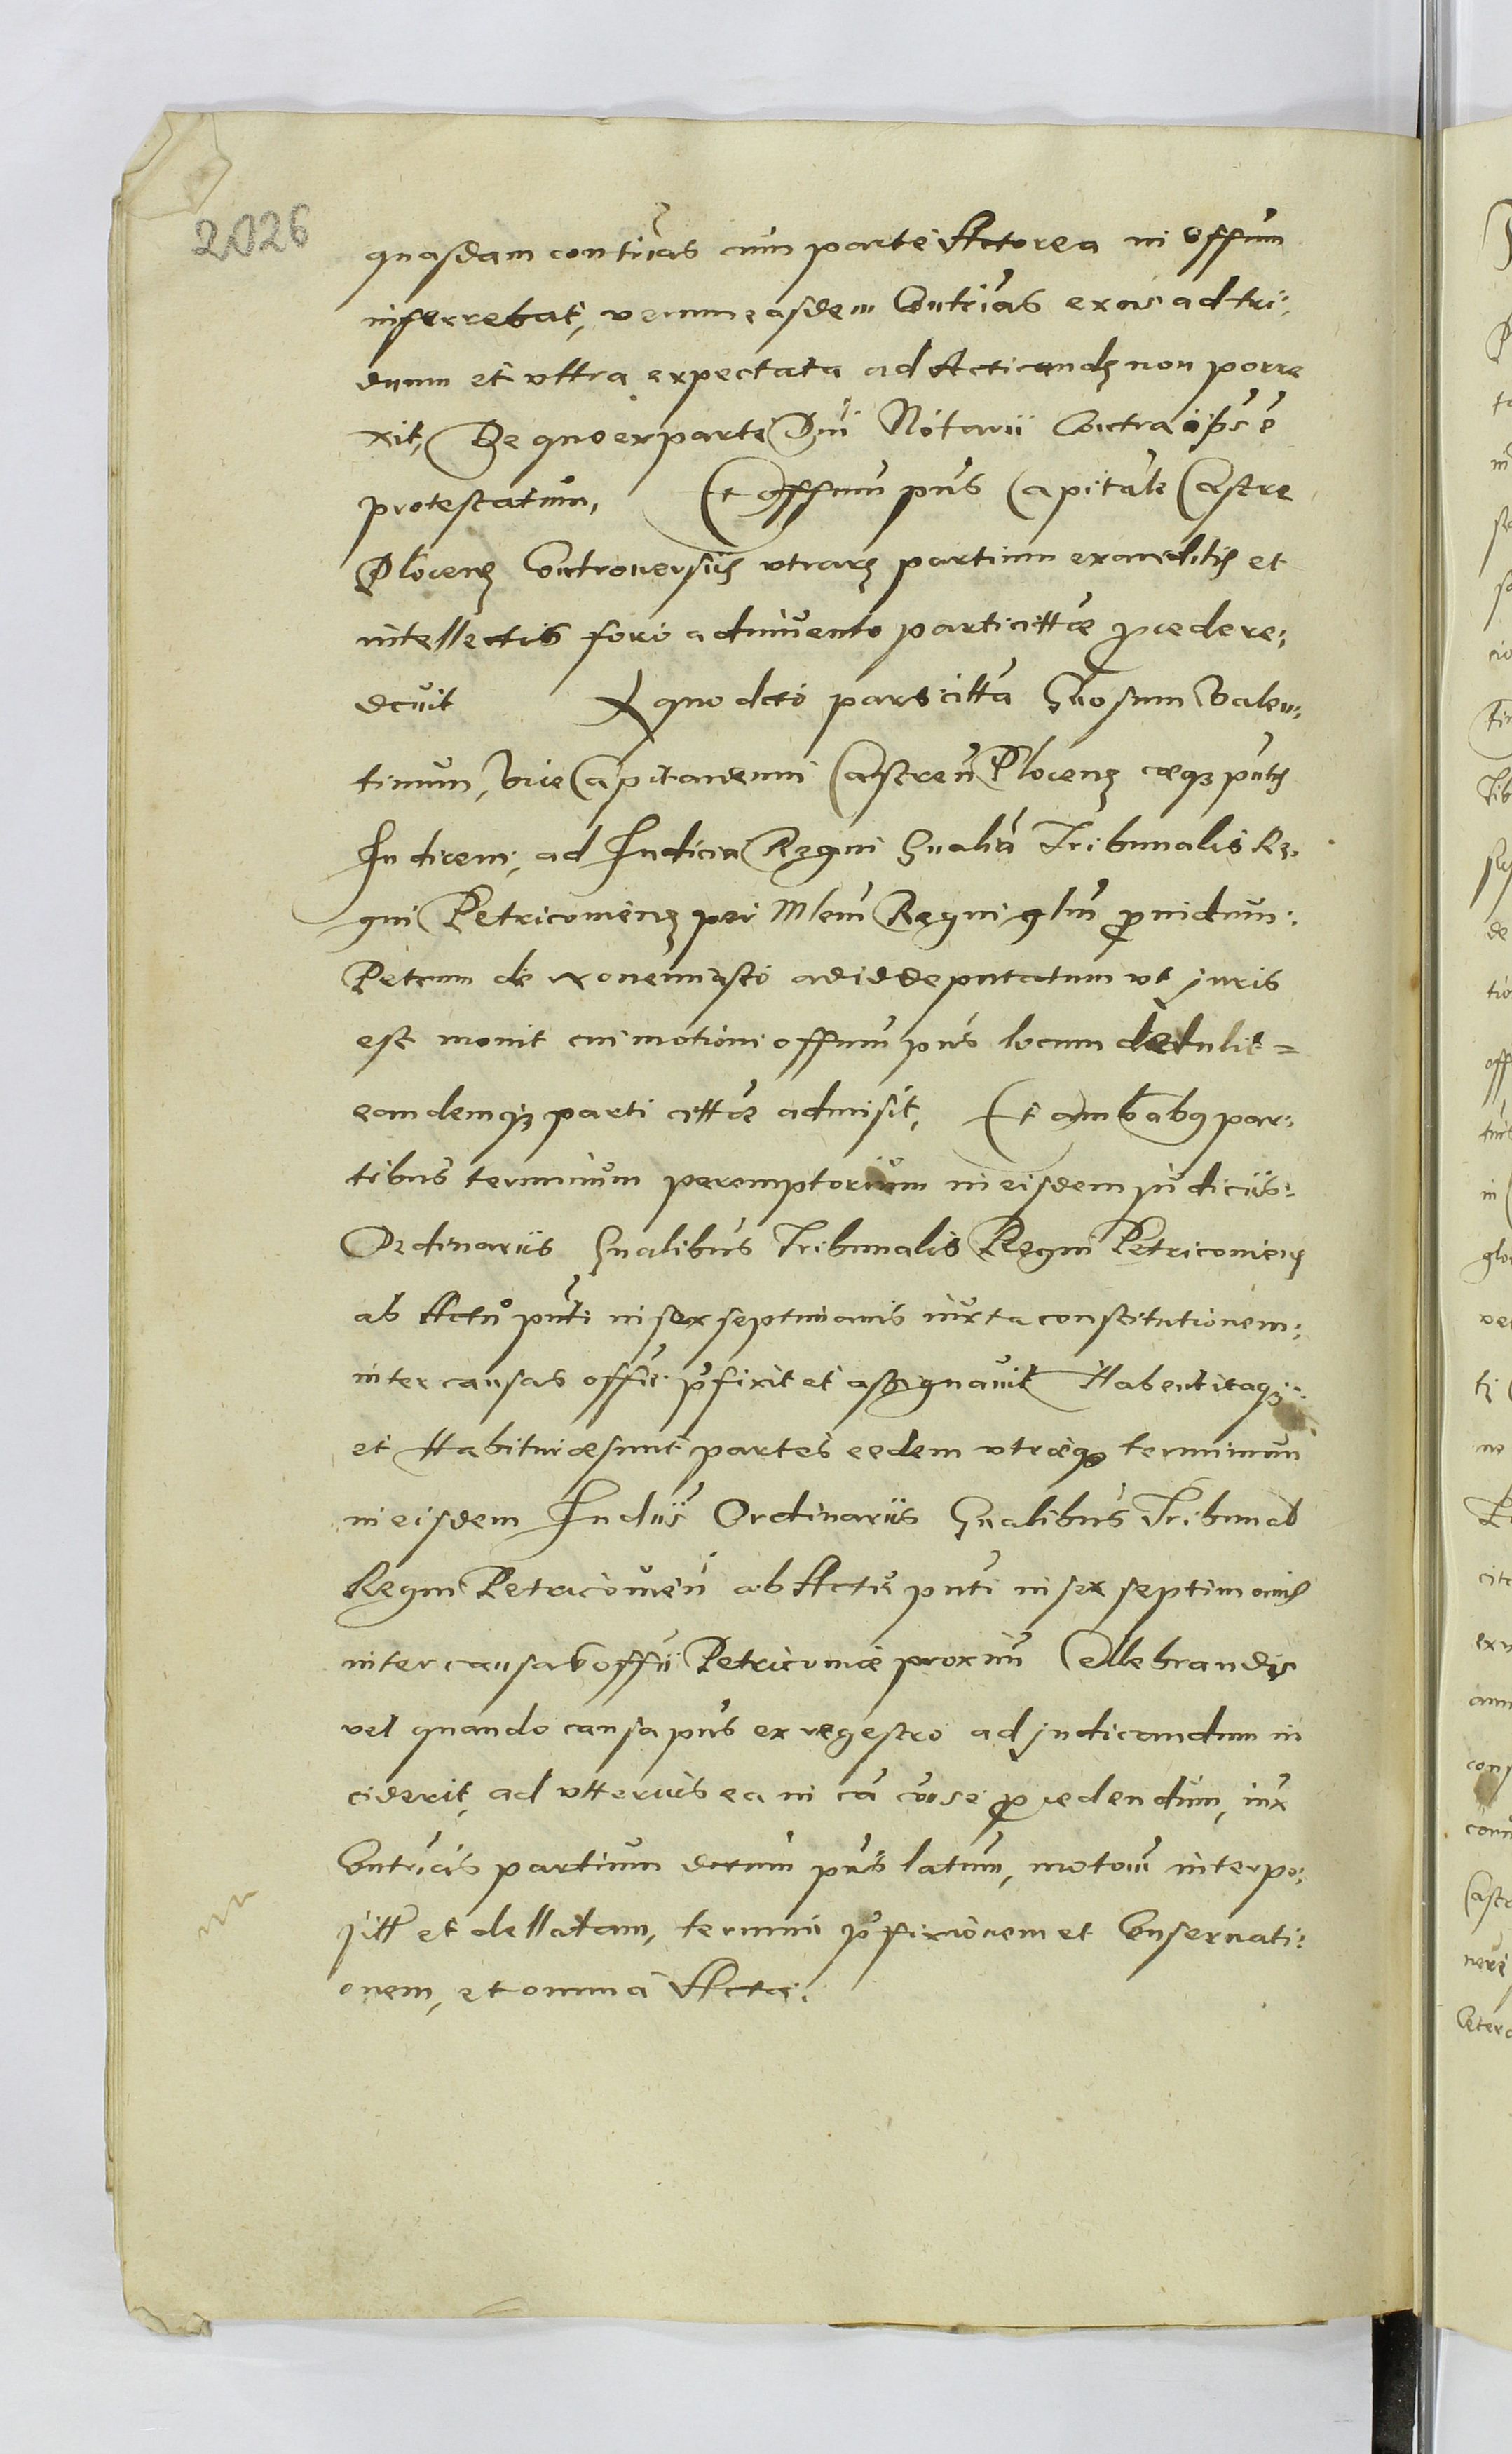 2026
quasdam contrias cum parte Actorea in offum
inferrebat, verum easdem Contrias ex nis ad tri:
duum et vltra expectata ad Acticandz non porre
xit, De quo ex parte Dni Notarii Contra ips e
protestatum, Et Offium pns Capitale Castre
Plocenz Controversiis vtrarz partium exauditis et
intellectis fori adinvento parti cittae procedere:
dcuit A quo dcto pars citta Gnosum Valen:
tinum, Vice Capitaneum Castren Plocenz eieq3 pntis
Iudicem, ad Iudicia Regni Gnalia Tribunalis Re:
gni Petricoviens per Mlem Regni glm providum:
Petrum de ad id deputatum vt juris
est movit cui motioni offium pns locum detulit =
eandemq3 parti cittae admisit, Et ambabq par:
tibus terminum peremptorium in eisdem judiciis:
Ordinariis Gnalibus Tribunalis Regni Petricoviens
ab Actu pnti in sex septimanis iuxta constitutionem:
inter causas offii pfixit et assignavit Habent itaq3:
et Habiturae sunt partes eedem vtraeq3 terminum
in eisdem Iudiis Ordinariis Gnalibus Tribunal
Regni Petricovien ab Actu pnti in sex septimanis
inter causas offii Petricoviae proxim Cellebrandis
vel quando causa pns ex regestro ad judicandum in
ciderit, ad vlterius ea in ca cose procedendum, iux
Contrias partium dctum pns latum, motom interpo:
sitt et dellatam, termini pfixionem et Conservati:
onem, et omnia Acta: